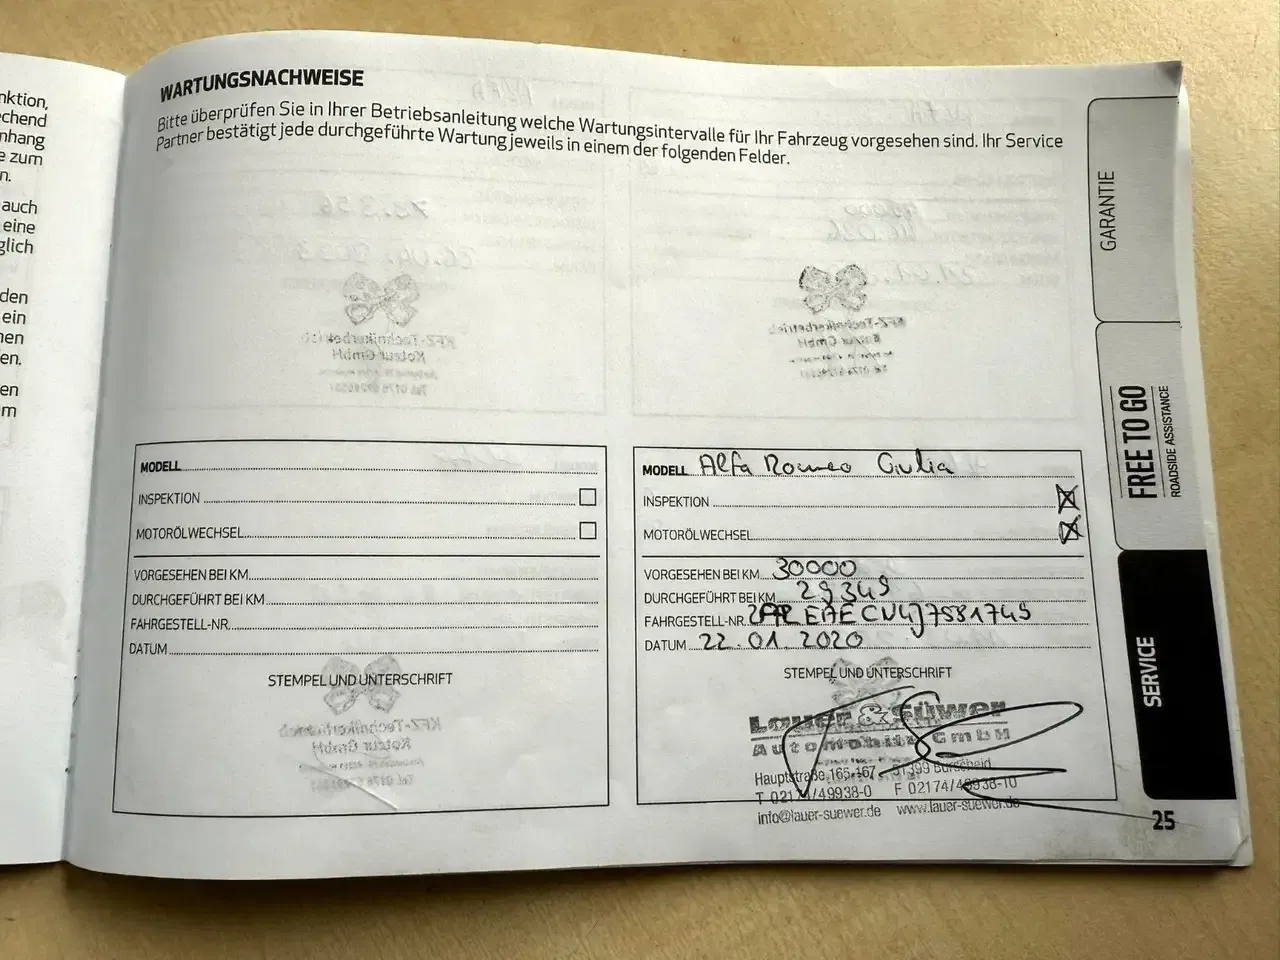 nktion,
chend
nhang
e zum
n.
auch
eine
glich
den
ein
nen
en.
en
m
WARTUNGSNACHWEISE
Bitte überprüfen Sie in Ihrer Betriebsanleitung welche Wartungsintervalle für Ihr Fahrzeug vorgesehen sind. Ihr Service
Partner bestätigt jede durchgeführte Wartung jeweils in einem der folgenden Felder.
MODELL
INSPEKTION
MOTORÖLWECHSEL
VORGESEHEN BEI KM
DURCHGEFÜHRT BEI KM
FAHRGESTELL-NR.
DATUM
STEMPEL UND UNTERSCHRIFT
MODELL Alfa Romeo Giulia
INSPEKTION
MOTORÖLWECHSEL
VORGESEHEN BEI KM 30000
DURCHGEFÜHRT BEI KM 29349
FAHRGESTELL-NR.
DATUM 22.01.2020
STEMPEL UND UNTERSCHRIFT
Lauer & Süwer
Automobile GmbH
Hauptstraße 165-167 51399 Burscheid
T 02174/49938-0 F 02174/49938-10
info@lauer-suewer.de www.lauer-suewer.de
GARANTIE
FREE TO GO
ROADSIDE ASSISTANCE
SERVICE
25